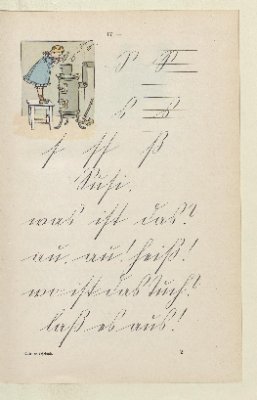 S S
s s
ſ ſſ ß
Suſi.
was iſt das?
au, au! heiß!
wo iſt das Tuch?
laß es aus!
2